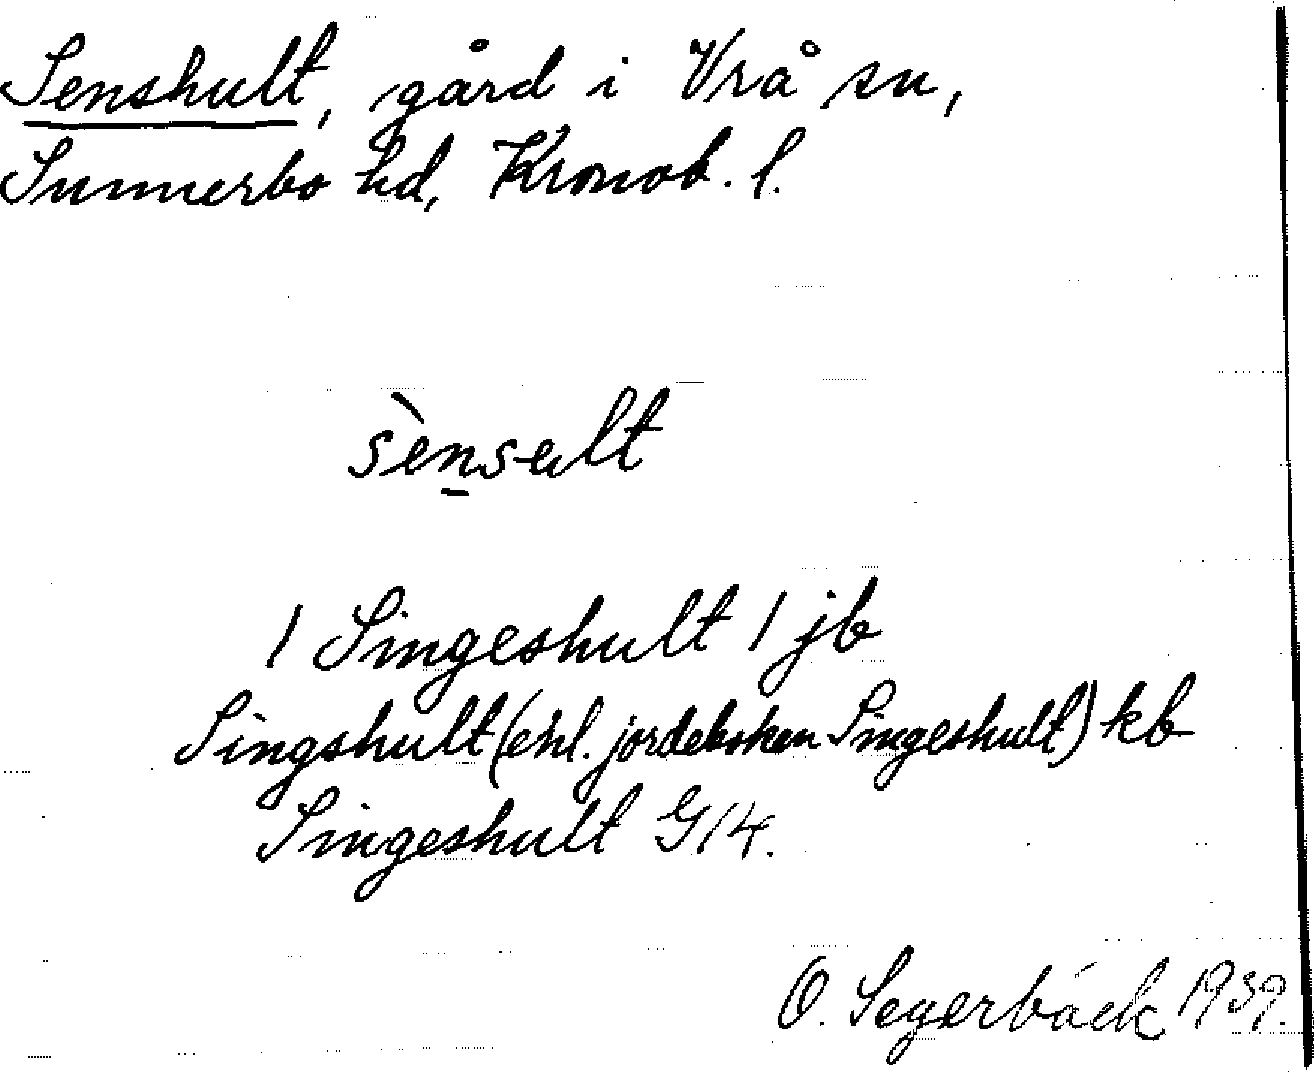 Senshult, gård i Vrå sn,
Sunnerbo hd, Kronob. l.
sènsult
/ Singeshult / jb
Singshult (enl. jordeboken Singeshult) kb
Singeshult G14.
O. Segerbäck 1939.